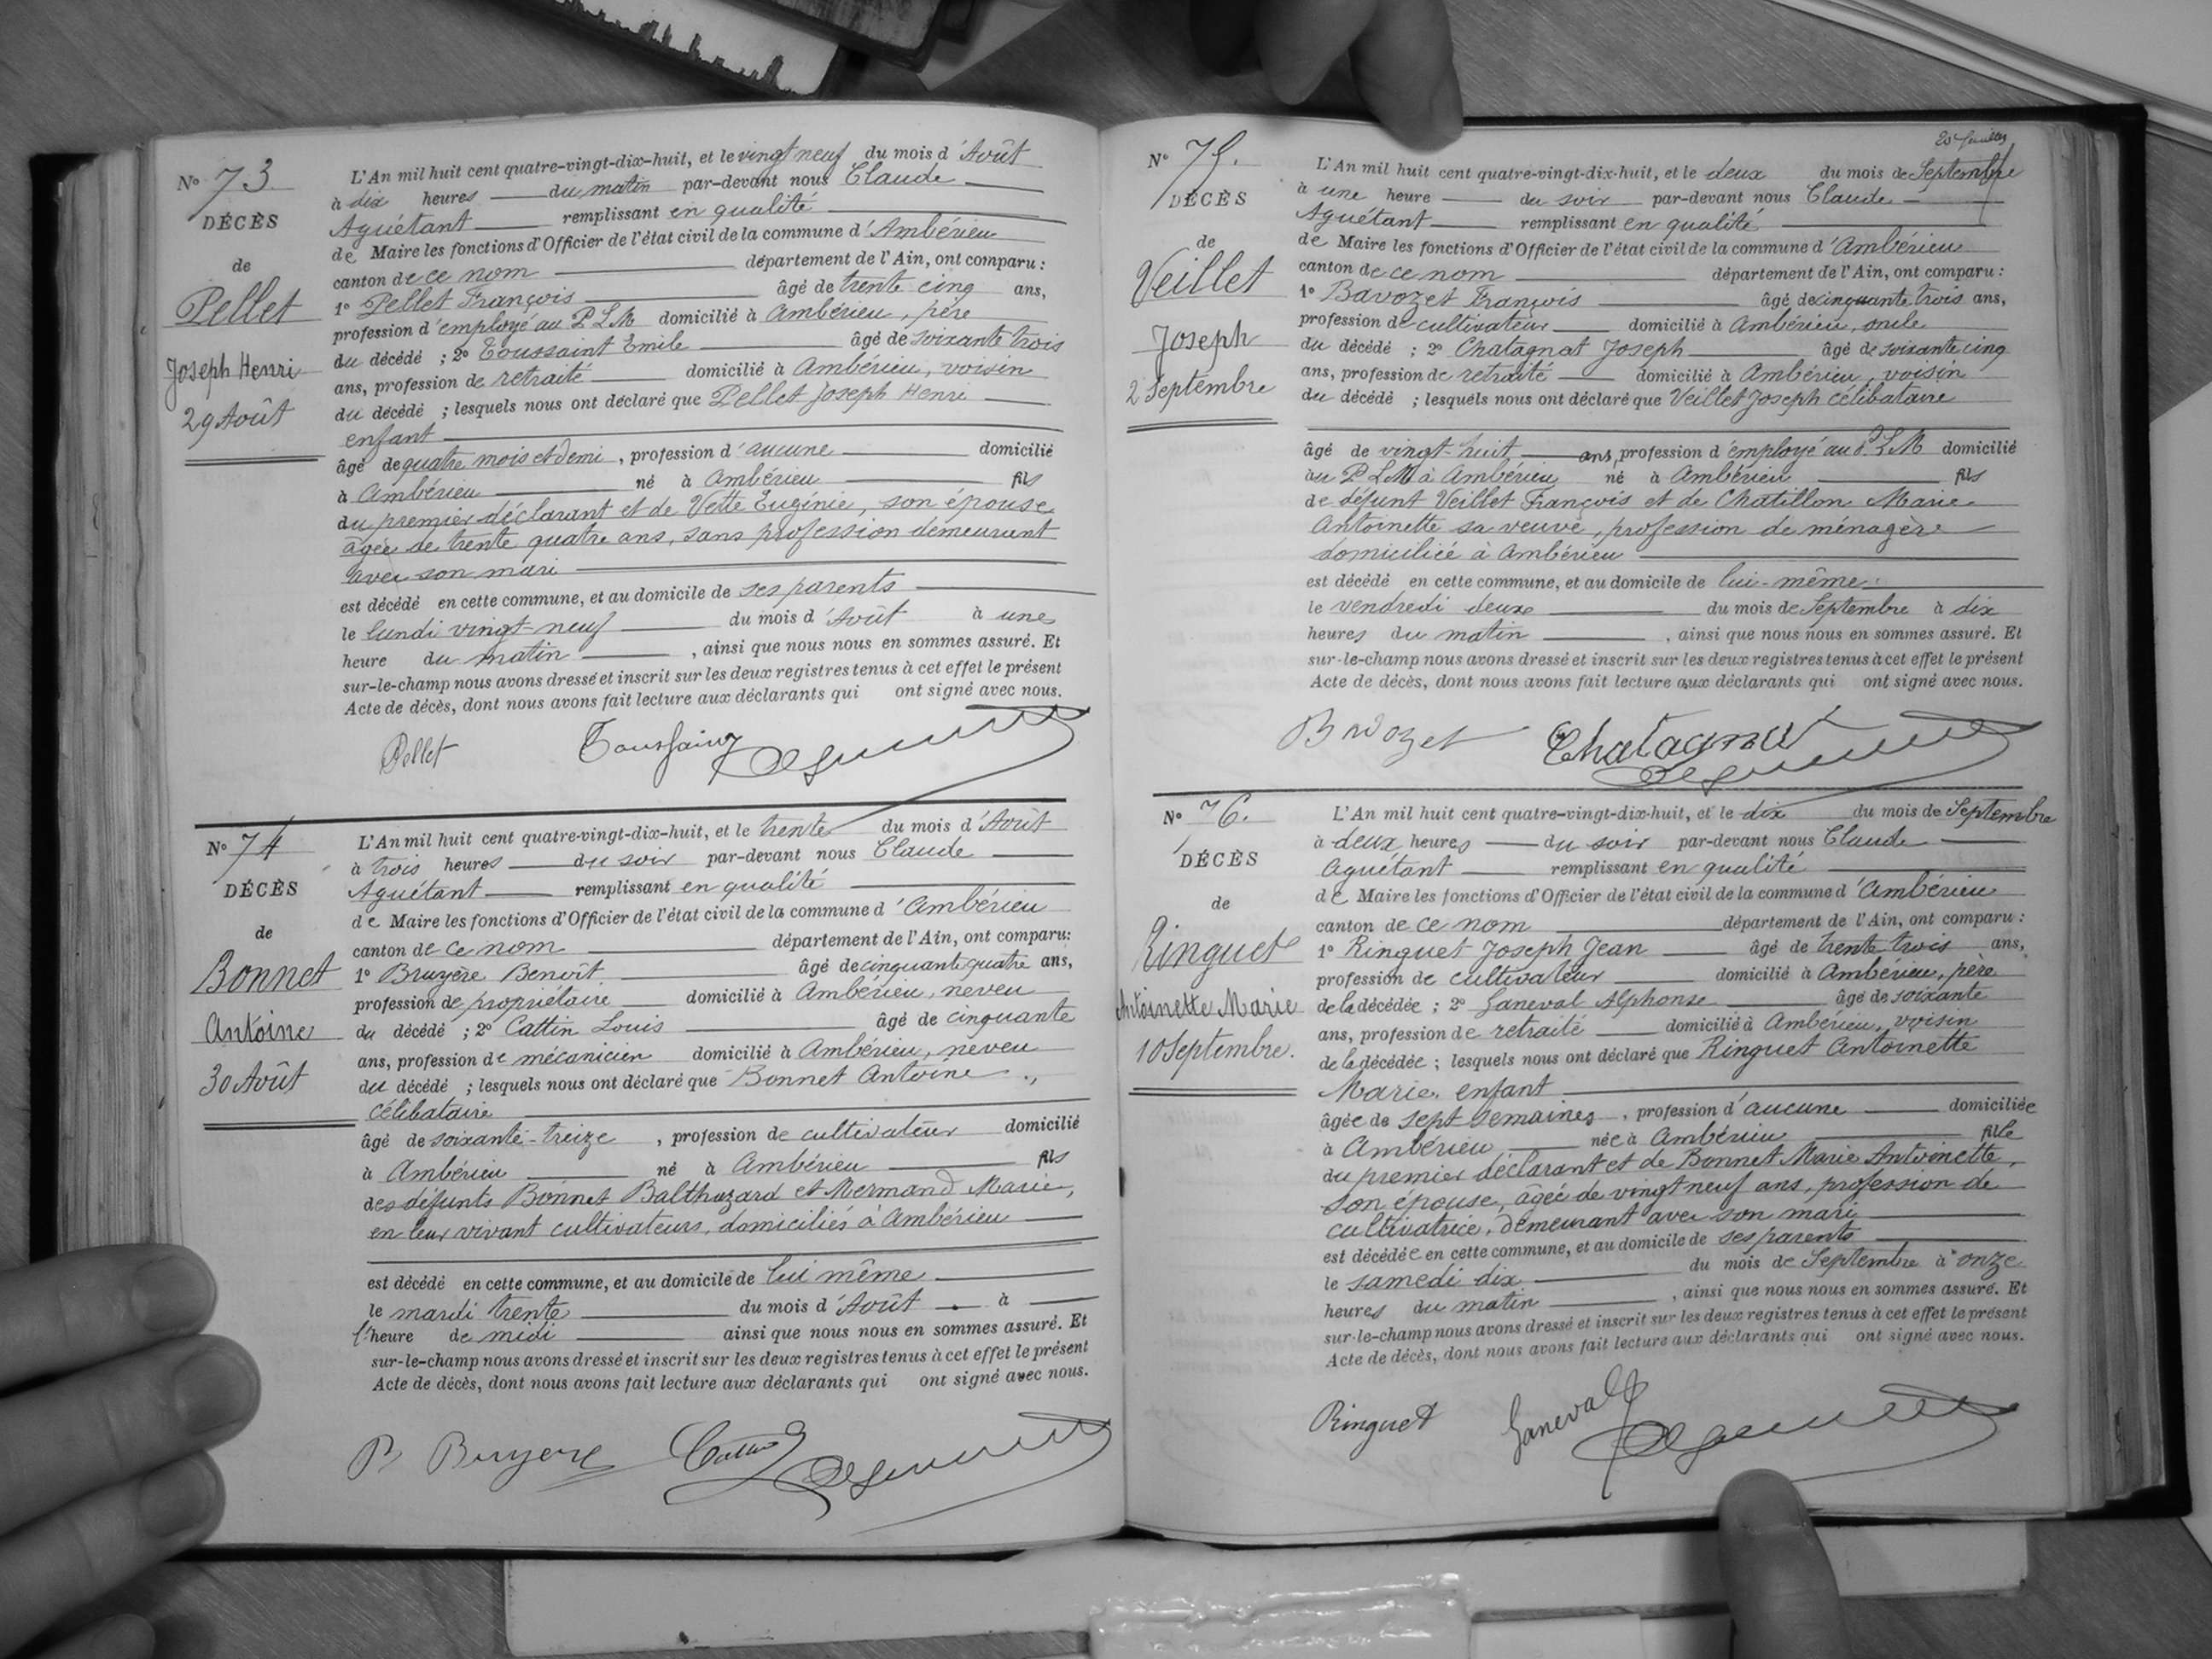 N° 73
DÉCÈS
de
Pellet
Joseph Henri
29 Août
L'An mil huit cent quatre-vingt-dix-huit, et le vingt neuf du mois d'Août
à dix heures du matin par-devant nous Claude
Aguétant remplissant en qualité
de Maire les fonctions d'Officier de l'état civil de la commune d'Ambérieu
canton de ce nom département de l'Ain, ont comparu :
1° Pellet François âgé de trente cinq ans,
profession d'employé au P L M domicilié à Ambérieu, père
du décédé ; 2° Toussaint Emile âgé de soixante trois
ans, profession de retraité domicilié à Ambérieu, voisin
du décédé ; lesquels nous ont déclaré que Pellet Joseph Henri
enfant
âgé de quatre mois et demi, profession d'aucune domicilié
à Ambérieu né à Ambérieu fils
du premier déclarant et de Vette Eugénie, son épouse
âgée de trente quatre ans, sans profession demeurant
avec son mari
est décédé en cette commune, et au domicile de ses parents
le lundi vingt-neuf du mois d'Août à une
heure du matin, ainsi que nous nous en sommes assuré. Et
sur-le-champ nous avons dressé et inscrit sur les deux registres tenus à cet effet le présent
Acte de décès, dont nous avons fait lecture aux déclarants qui ont signé avec nous.
Pellet Toussaint
N° 74
DÉCÈS
de
Bonnet
Antoine
30 Août
L'An mil huit cent quatre-vingt-dix-huit, et le trente du mois d'Août
à trois heures du soir par-devant nous Claude
Aguétant remplissant en qualité
de Maire les fonctions d'Officier de l'état civil de la commune d'Ambérieu
canton de ce nom département de l'Ain, ont comparu:
1° Bruyère Benoît âgé de cinquante quatre ans,
profession de propriétaire domicilié à Ambérieu, neveu
du décédé ; 2° Cattin Louis âgé de cinquante
ans, profession de mécanicien domicilié à Ambérieu, neveu
du décédé ; lesquels nous ont déclaré que Bonnet Antoine,
célibataire
âgé de soixante-treize, profession de cultivateur domicilié
à Ambérieu né à Ambérieu fils
des défunts Bonnet Balthazard et Mermand Marie,
en leur vivant cultivateurs, domiciliés à Ambérieu
est décédé en cette commune, et au domicile de lui même
le mardi trente du mois d'Août à
l'heure de midi ainsi que nous nous en sommes assuré. Et
sur-le-champ nous avons dressé et inscrit sur les deux registres tenus à cet effet le présent
Acte de décès, dont nous avons fait lecture aux déclarants qui ont signé avec nous.
B Bruyere Cattin
N° 75.
DÉCÈS
de
Veillet
Joseph
2 Septembre
L'An mil huit cent quatre-vingt-dix-huit, et le deux du mois de Septembre
à une heure du soir par-devant nous Claude
Aguétant remplissant en qualité
de Maire les fonctions d'Officier de l'état civil de la commune d'Ambérieu
canton de ce nom département de l'Ain, ont comparu :
1° Bavozet François âgé de cinquante trois ans,
profession de cultivateur domicilié à Ambérieu, oncle
du décédé ; 2° Chatagnat Joseph âgé de soixante cinq
ans, profession de retraité domicilié à Ambérieu, voisin
du décédé ; lesquels nous ont déclaré que Veillet Joseph célibataire
âgé de vingt-huit ans, profession d'employé au P.L.M domicilié
au P L M à Ambérieu né à Ambérieu fils
de défunt Veillet François et de Chatillon Marie
Antoinette sa veuve, profession de ménagère
domiciliée à Ambérieu
est décédé en cette commune, et au domicile de lui-même
le vendredi deux du mois de Septembre à dix
heures du matin, ainsi que nous nous en sommes assuré. Et
sur-le-champ nous avons dressé et inscrit sur les deux registres tenus à cet effet le présent
Acte de décès, dont nous avons fait lecture aux déclarants qui ont signé avec nous.
Bavozet Chatagnat
N° 76.
DÉCÈS
de
Ringuet
Antoinette Marie
10 Septembre.
L'An mil huit cent quatre-vingt-dix-huit, et le dix du mois de Septembre
à deux heures du soir par-devant nous Claude
Aguétant remplissant en qualité
de Maire les fonctions d'Officier de l'état civil de la commune d'Ambérieu
canton de ce nom département de l'Ain, ont comparu :
1° Ringuet Joseph Jean âgé de trente trois ans,
profession de cultivateur domicilié à Ambérieu, père
de la décédée ; 2° Janeval Alphonse âgé de soixante
ans, profession de retraité domicilié à Ambérieu, voisin
de la décédée ; lesquels nous ont déclaré que Ringuet Antoinette
Marie, enfant
âgée de sept semaines, profession d'aucune domiciliée
à Ambérieu née à Ambérieu fille
du premier déclarant et de Bonnet Marie Antoinette,
son épouse, âgée de vingt neuf ans, profession de
cultivatrice, demeurant avec son mari
est décédée en cette commune, et au domicile de ses parents
le samedi dix du mois de Septembre à onze
heures du matin, ainsi que nous nous en sommes assuré. Et
sur-le-champ nous avons dressé et inscrit sur les deux registres tenus à cet effet le présent
Acte de décès, dont nous avons fait lecture aux déclarants qui ont signé avec nous.
Ringuet Janeval